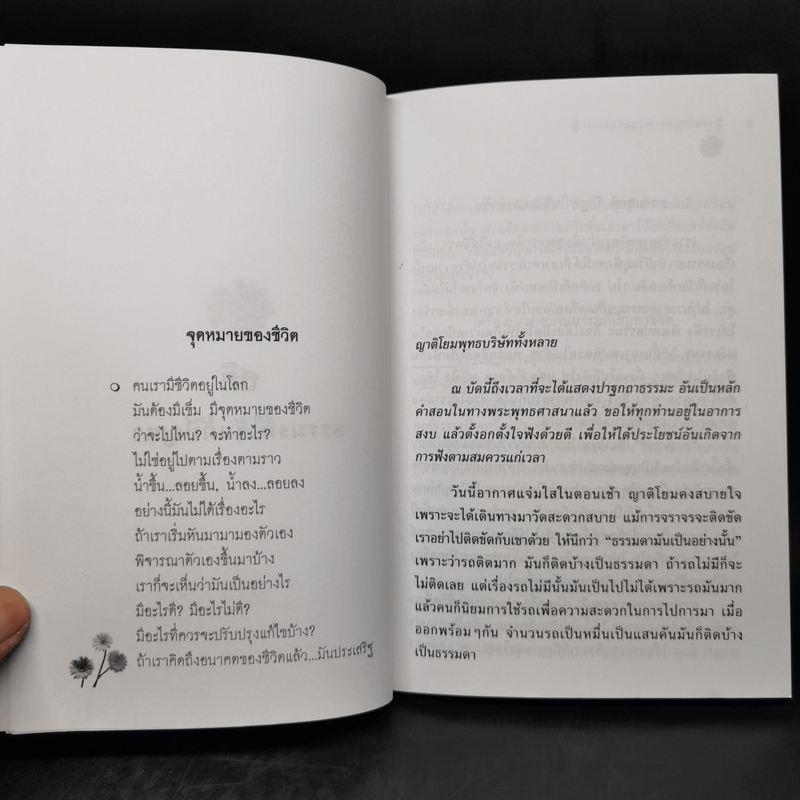 จุดหมายของชีวิต
คนเรามีชีวิตอยู่ในโลก
มันต้องมีเข็ม มีจุดหมายของชีวิต
ว่าจะไปไหน? จะทำอะไร?
ไม่ใช่อยู่ไปตามเรื่องตามราว
น้ำขึ้น...ลอยขึ้น, น้ำลง...ลอยลง
อย่างนี้มันไม่ได้เรื่องอะไร
ถ้าเราเริ่มหันมามามองตัวเอง
พิจารณาตัวเองขึ้นมาบ้าง
เราก็จะเห็นว่ามันเป็นอย่างไร
มีอะไรดี? มีอะไรไม่ดี?
มีอะไรที่ควรจะปรับปรุงแก้ไขบ้าง?
ถ้าเราคิดถึงอนาคตของชีวิตแล้ว...มันประเสริฐ
ญาติโยมพุทธบริษัททั้งหลาย
ณ บัดนี้ถึงเวลาที่จะได้แสดงปาฐกถาธรรมะ อันเป็นหลัก
คำสอนในทางพระพุทธศาสนาแล้ว ขอให้ทุกท่านอยู่ในอาการ
สงบ แล้วตั้งอกตั้งใจฟังด้วยดี เพื่อให้ได้ประโยชน์อันเกิดจาก
การฟังตามสมควรแก่เวลา
วันนี้อากาศแจ่มใสในตอนเช้า ญาติโยมคงสบายใจ
เพราะจะได้เดินทางมาวัดสะดวกสบาย แม้การจราจรจะติดขัด
เราอย่าไปติดขัดกับเขาด้วย ให้นึกว่า “ธรรมดามันเป็นอย่างนั้น”
เพราะว่ารถติดมาก มันก็ติดบ้างเป็นธรรมดา ถ้ารถไม่มีก็จะ
ไม่ติดเลย แต่เรื่องรถไม่มีนั้นมันเป็นไปไม่ได้เพราะรถมันมาก
แล้วคนก็นิยมการใช้รถเพื่อความสะดวกในการไปการมา เมื่อ
ออกพร้อมๆกัน จำนวนรถเป็นหมื่นเป็นแสนคันมันก็ติดบ้าง
เป็นธรรมดา